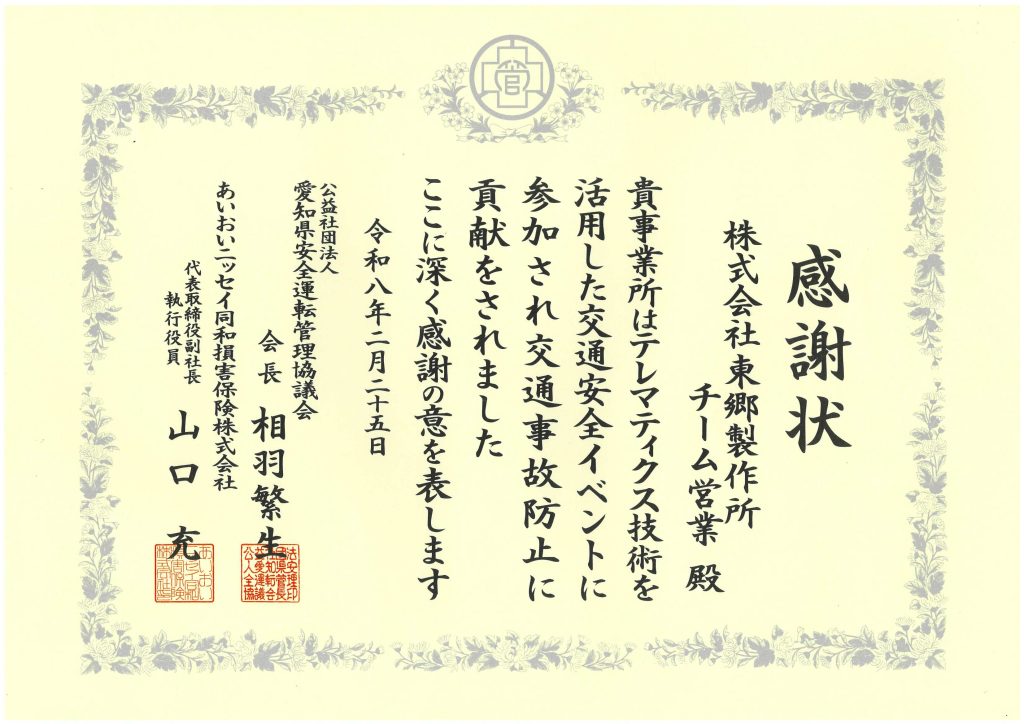 管
感謝状
株式会社東郷製作所
チーム営業 殿
貴事業所はテレマティクス技術を
活用した交通安全イベントに
参加され交通事故防止に
貢献をされました
ここに深く感謝の意を表します
令和八年二月二十五日
公益社団法人
愛知県安全運転管理協議会
会長 相羽繁生
あいおいニッセイ同和損害保険株式会社
代表取締役副社長
執行役員
山口 充